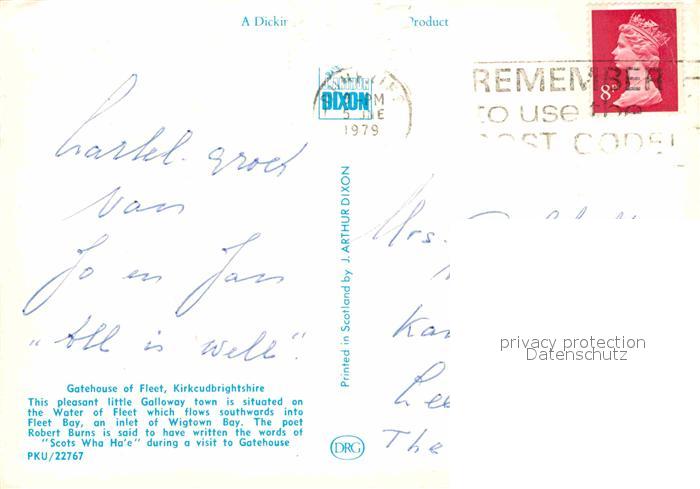 A Dickin Product
DIXON
PM
5 JNE
1979
REMEMBER
to use the
POST CODE!
8P
hartel. groet
van
Jo en Jan
"All is well".
Printed in Scotland by J. ARTHUR DIXON
DRG
Mrs.
Kan
Lee
The
privacy protection
Datenschutz
Gatehouse of Fleet, Kirkcudbrightshire
This pleasant little Galloway town is situated on
the Water of Fleet which flows southwards into
Fleet Bay, an inlet of Wigtown Bay. The poet
Robert Burns is said to have written the words of
"Scots Wha Ha'e" during a visit to Gatehouse
PKU/22767